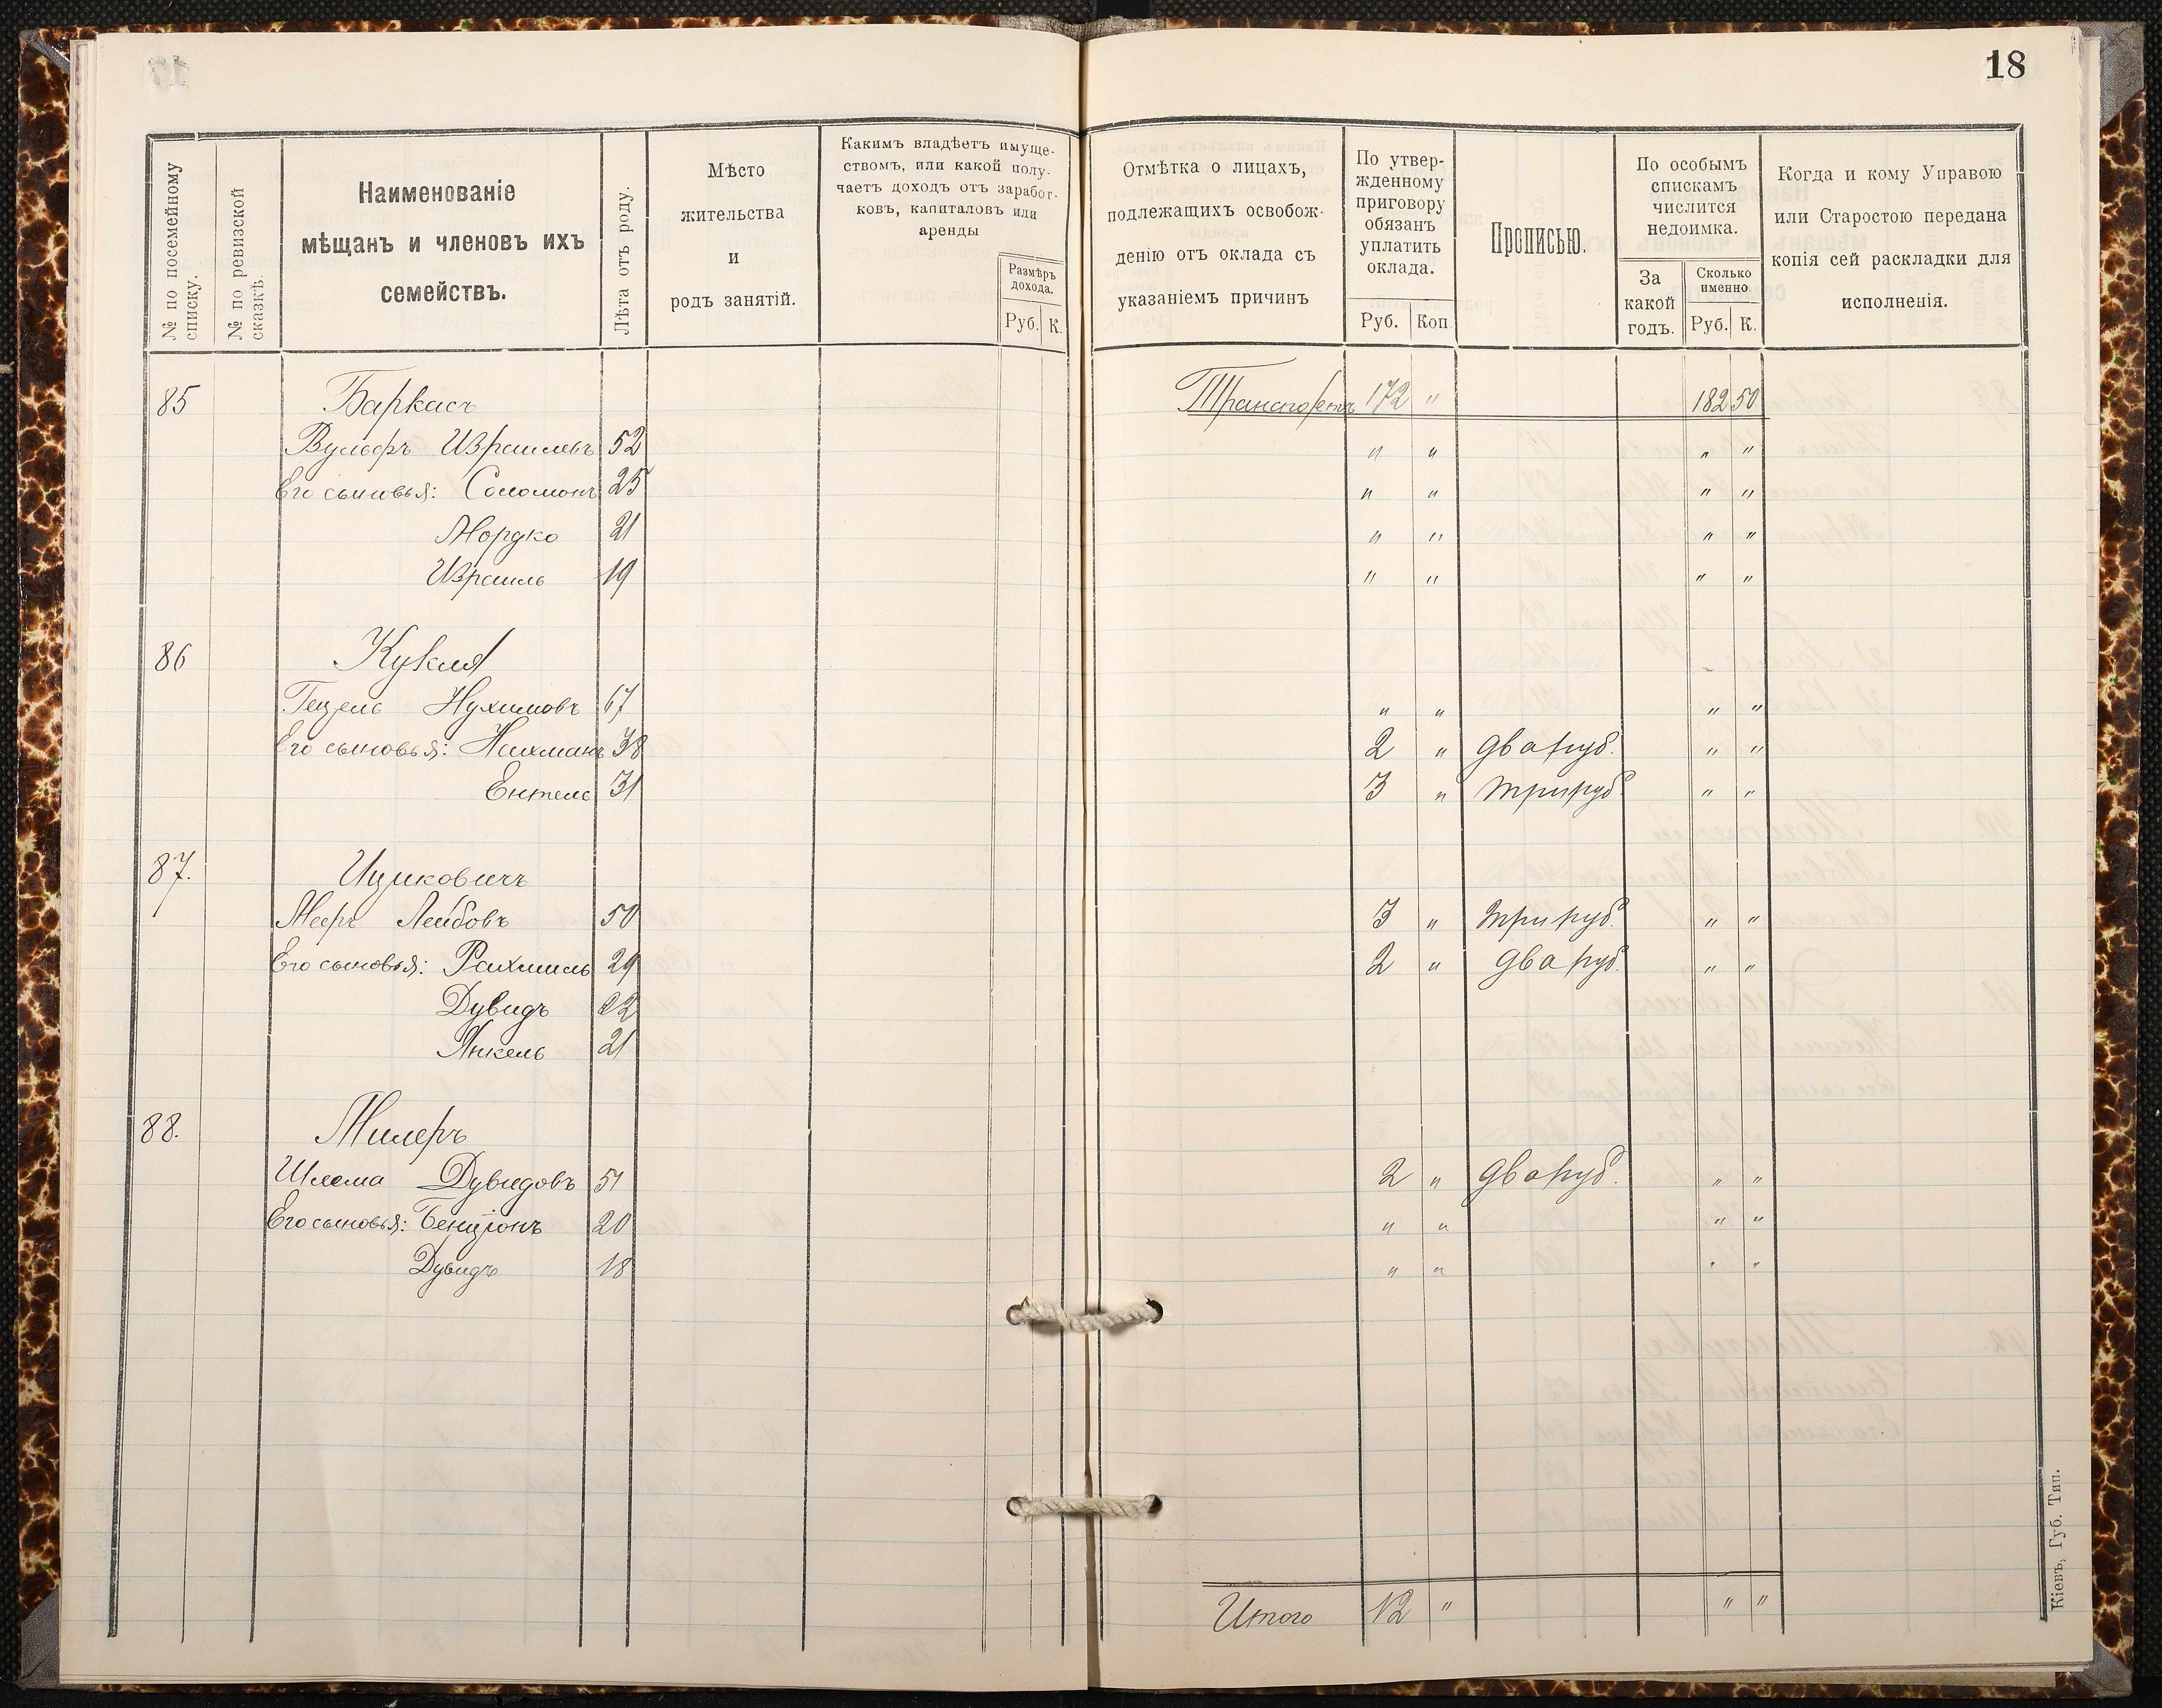 18
№ по посемейному списку.
№ по ревизской сказкѣ.
Наименованіе мѣщанъ и членовъ ихъ семействъ.
Лѣта отъ роду.
Мѣсто жительства и родъ занятій.
Какимъ владѣетъ имуще-
ствомъ, или какой полу-
чаетъ доходъ отъ заработ-
ковъ, капиталовъ или
аренды
Размѣръ дохода.
Руб. К.
Отмѣтка о лицахъ,
подлежащихъ освобож-
денію отъ оклада съ
указаніемъ причинъ
По утвер-
жденному
приговору
обязанъ
уплатить
оклада.
Руб. Коп.
Прописью.
По особымъ
спискамъ
числится
недоимка.
За какой годъ.
Сколько именно
Руб. К.
Когда и кому Управою
или Старостою передана
копія сей раскладки для
исполненія.
85 Баркасъ Транспортъ 172 " 182 50
Вульфъ Израилевъ 52 " " " "
Его сыновья: Соломонъ 25 " " " "
Мордко 21 " " " "
Израиль 19 " " " "
86 Кукля
Гецель Нухимовъ 67 " " " "
Его сыновья: Нахманъ 38 2 " два руб. " "
Ентель 31 3 " три руб. " "
87. Ицковичъ
Меръ Лейбовъ 50 3 " три руб. " "
Его сыновья: Рахмиль 29 2 " два руб. " "
Дувидъ 22
Янкель 21
88. Милеръ
Шлема Дувидовъ 51 2 " два руб. " "
Его сыновья: Бенціонъ 20 " " " "
Дувидъ 18 " " " "
Итого 12 " " "
Кіевъ, Губ. Тип.